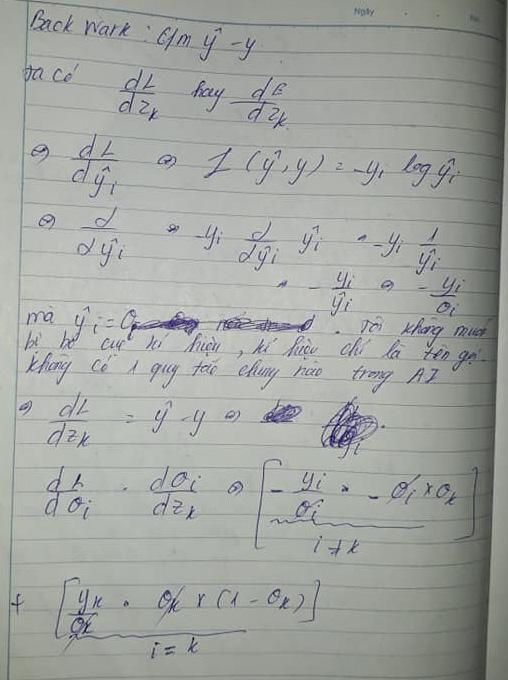 Ngày
No.
Back Wark : C/m ŷ - y
ta có dL/dz_k hay dE/dz_k
⇒ dL/dŷ_i ⇒ L (ŷ, y) = -y_i log ŷ_i
⇒ d/dŷ_i = -y_i d/dŷ_i ŷ_i = -y_i 1/ŷ_i
= - y_i/ŷ_i ⇒ - y_i/σ_i
mà ŷ_i = σ_i . Tôi không muốn
bị bó cục kí hiệu, kí hiệu chỉ là tên gọi.
không có 1 quy tắc chung nào trong AI
⇒ dL/dz_k = ŷ - y ⇒
dL/dσ_i . dσ_i/dz_k ⇒ [ - y_i/σ_i · - σ_i × σ_k ]
i ≠ k
+ [ y_k/σ_k · σ_k × (1 - σ_k) ]
i = k